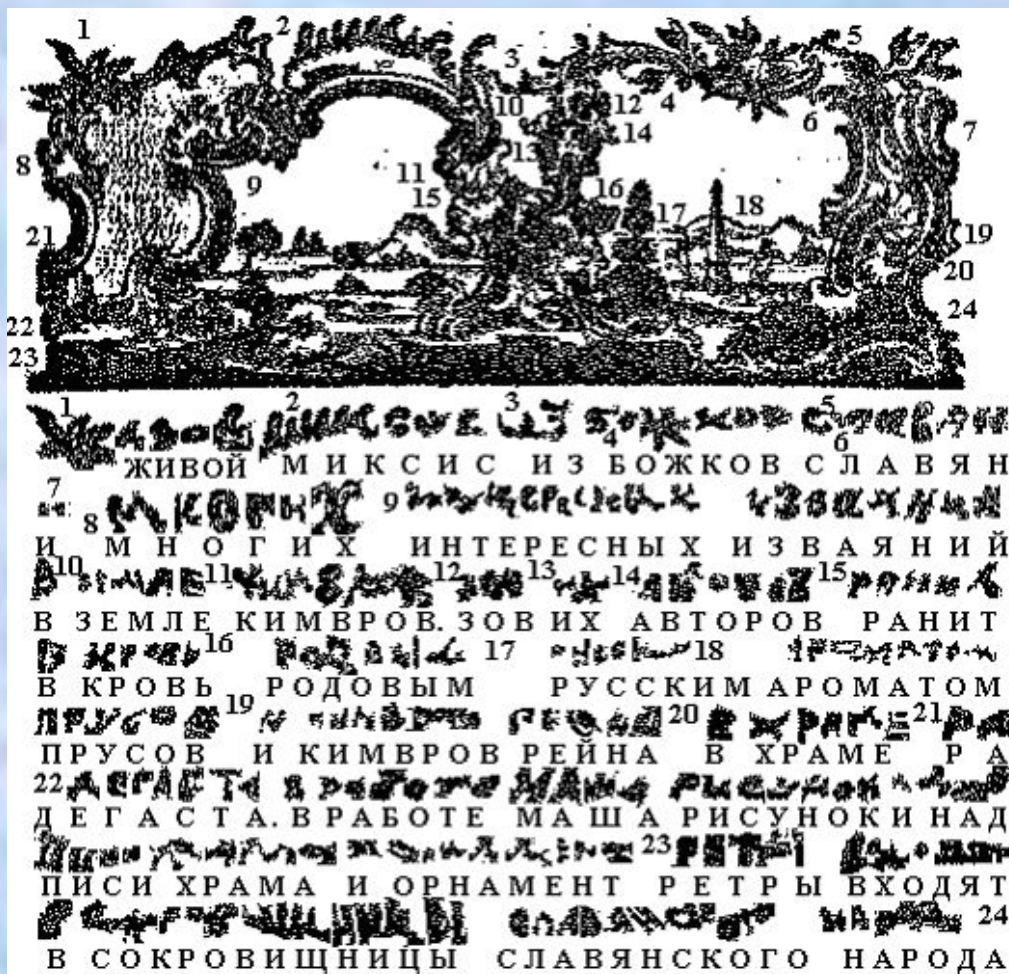 1 2 3 5
10 12 4
14 6 7
8 13
9 11
15 16
17 18
21 19
20
22 24
23
1 2 3 4 5 6
ЖИВОЙ МИКСИС ИЗ БОЖКОВ СЛАВЯН
7 8 9
И МНОГИХ ИНТЕРЕСНЫХ ИЗВАЯНИЙ
10 11 12 13 14 15
В ЗЕМЛЕ КИМВРОВ. ЗОВ ИХ АВТОРОВ РАНИТ
16 17 18
В КРОВЬ РОДОВЫМ РУССКИМ АРОМАТОМ
19 20 21
ПРУСОВ И КИМВРОВ РЕЙНА В ХРАМЕ РА
22
ДЕГАСТА. В РАБОТЕ МАША РИСУНОК И НАД
23
ПИСИ ХРАМА И ОРНАМЕНТ РЕТРЫ ВХОДЯТ
24
В СОКРОВИЩНИЦЫ СЛАВЯНСКОГО НАРОДА